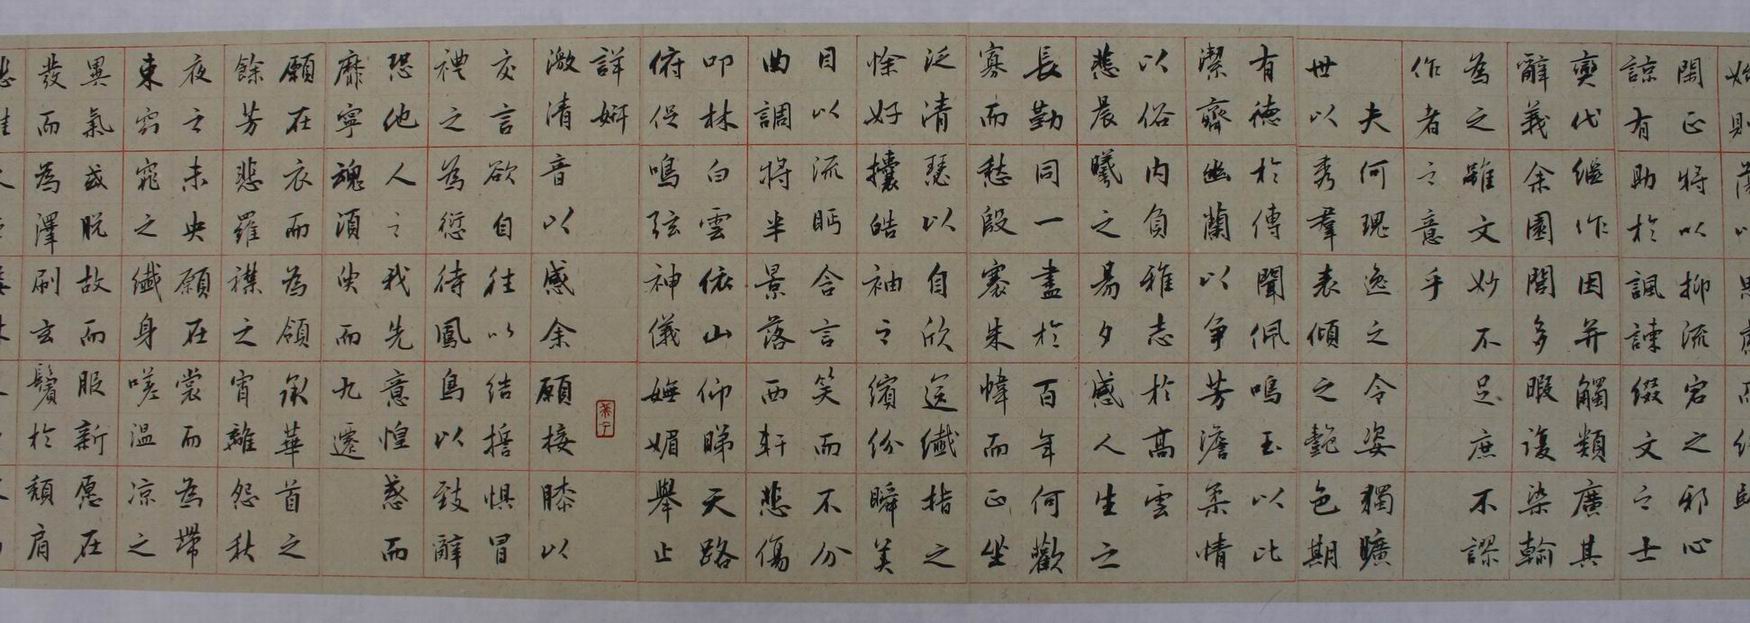 閑正將以抑流宕之邪心
諒有助於諷諫綴文之士
奕代繼作因并觸類廣其
辭義余園閭多暇復染翰
為之雖文妙不足庶不謬
作者之意乎
夫何瑰逸之令姿獨曠
世以秀羣表傾之艷色期
有德於傳聞佩鳴玉以比
潔齊幽蘭以爭芳澹柔情
以俗內負雅志於高雲
悲晨曦之易夕感人生之
長勤同一盡於百年何歡
寡而愁殷褰朱幃而正坐
泛清瑟以自欣送纖指之
悇好攘皓袖之繽紛瞬美
目以流眄含言笑而不分
曲調將半景落西軒悲傷
叩林白雲依山仰睇天路
俯促鳴弦神儀嫵媚舉止
詳妍
激清音以感余願接膝以
交言欲自往以結誓惧冒
禮之為愆待鳳鳥以致辭
恐他人之我先意惶惑而
靡寧魂須臾而九遷
願在衣而為領承華首之
餘芳悲羅襟之宵離怨秋
夜之未央願在裳而為帶
束窈窕之纖身嗟温涼之
異氣或脫故而服新愿在
發而為澤刷玄鬢於頹肩